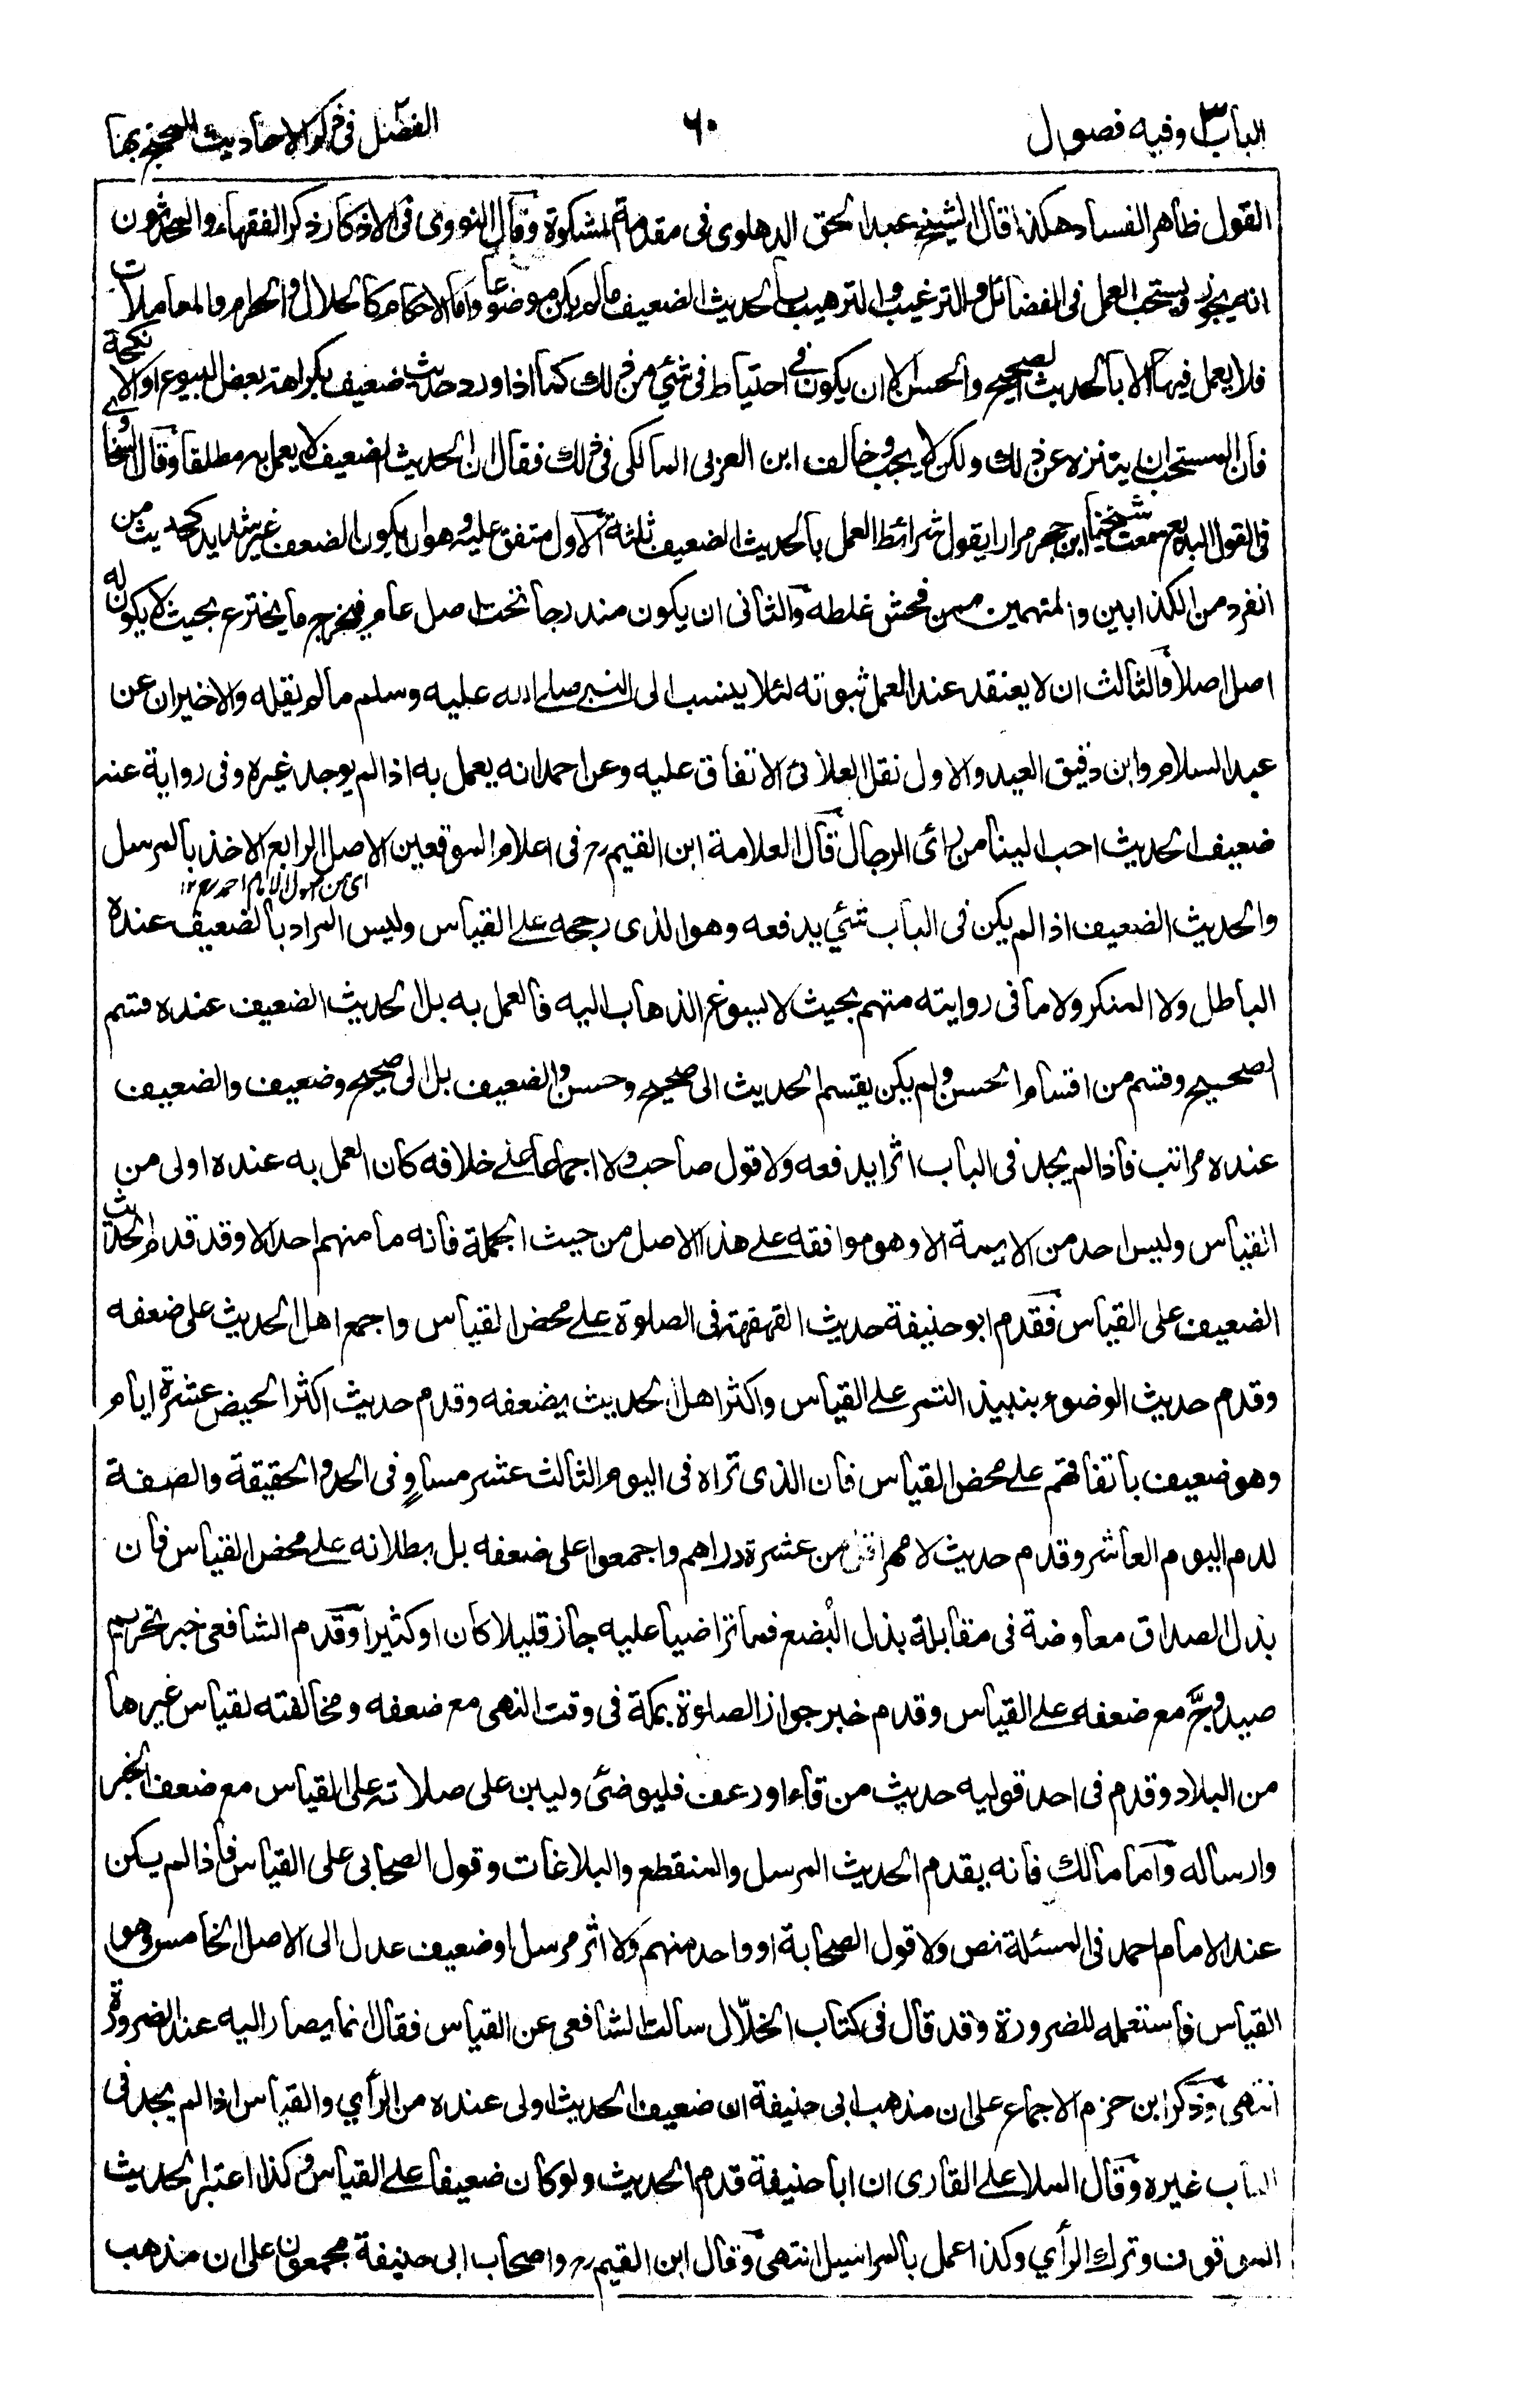 الباب ٣ وفيه فصول
٦٠
الفصل فى ذكر الاحاديث المحتج بها
القول ظاهر الفساد هكذا قال الشيخ عبد الحق الدهلوى فى مقدمة المشكوة وقال النووى فى الاذكار ذكر الفقهاء والمحدثون
انه يجوز ويستحب العمل فى الفضائل والترغيب والترهيب بالحديث الضعيف مالم يكن موضوعا واما الاحكام كالحلال والحرام والمعاملات
فلا يعمل فيها الا بالحديث الصحيح والحسن الا ان يكون فى احتياط فى شئي من ذلك كما اذا ورد حديث ضعيف بكراهة بعض البيوع او الانكحة
فان المستحب ان يتنزه عن ذلك ولكن لا يجب وخالف ابن العربى المالكى فى ذلك فقال ان الحديث الضعيف لا يعمل به مطلقا وقال السخاوى
فى القول البديع سمعت شيخنا ابن حجر مرارا يقول شرائط العمل بالحديث الضعيف ثلثة الاول متفق عليه وهو ان يكون الضعف غير شديد كحديث من
انفرد من الكذابين والمتهمين ممن فحش غلطه والثانى ان يكون مندرجا تحت اصل عام فيخرج ما يخترع بحيث لا يكون له
اصل اصلا والثالث ان لا يعتقد عند العمل ثبوته لئلا ينسب الى النبى صلے الله عليه وسلم مالم يقله والاخيران عن
عبد السلام وابن دقيق العيد والاول نقل العلائى الاتفاق عليه وعن احمد انه يعمل به اذا لم يوجد غيره وفى رواية عنه
ضعيف الحديث احب الينا من رائ الرجال قال العلامة ابن القيم رح فى اعلام الموقعين الاصل الرابع الاخذ بالمرسل
اى من اصول الامام احمد رح ١٢
والحديث الضعيف اذا لم يكن فى الباب شئي يدفعه وهو الذى رجحه علے القياس وليس المراد بالضعيف عنده
الباطل ولا المنكر ولا ما فى روايته متهم بحيث لا يسوغ الذهاب اليه فالعمل به بل الحديث الضعيف عنده قسم
الصحيح وقسم من اقسام الحسن ولم يكن يقسم الحديث الى صحيح وحسن والضعيف بل الى صحيح وضعيف والضعيف
عنده مراتب فاذا لم يجد فى الباب اثرا يدفعه ولا قول صاحب ولا اجماعا علے خلافه كان العمل به عنده اولى من
القياس وليس احد من الايمة الا وهو موافقه علے هذا الاصل من حيث الجملة فانه ما منهم احد الا وقد قدم الحديث
الضعيف على القياس فقدم ابو حنيفة حديث القهقهة فى الصلوة علے محض القياس واجمع اهل الحديث على ضعفه
وقدم حديث الوضوء بنبيذ التمر على القياس واكثر اهل الحديث يضعفه وقدم حديث اكثر الحيض عشرة ايام
وهو ضعيف باتفاقهم علے محض القياس فان الذى تراه فى اليوم الثالث عشر مساو فى الحد والحقيقة والصفة
لدم اليوم العاشر وقدم حديث لا مهر اقل من عشرة دراهم واجمعوا على ضعفه بل بطلانه علے محض القياس فان
بذل الصداق معاوضة فى مقابلة بذل البُضع فما تراضيا عليه جاز قليلا كان او كثيرا وقدم الشافعى خبر تحريم
صيد وجّ مع ضعفه علے القياس وقدم خبر جواز الصلوة بمكة فى وقت النهى مع ضعفه ومخالفته لقياس غيرها
من البلاد وقدم فى احد قوليه حديث من قاء او رعف فليوضئ وليبن على صلاته على القياس مع ضعف الخبر
وارساله واما مالك فانه يقدم الحديث المرسل والمنقطع والبلاغات وقول الصحابى على القياس فاذا لم يكن
عند الامام احمد فى المسئلة نص ولا قول الصحابة او واحد منهم ولا اثر مرسل او ضعيف عدل الى الاصل الخامس وهو
القياس فاستعمله للضرورة وقد قال فى كتاب الخلّال سالت الشافعى عن القياس فقال انما يصار اليه عند الضرورة
انتهى وذكر ابن حزم الاجماع على ان مذهب ابى حنيفة ان ضعيف الحديث اولى عنده من الرأي والقياس اذا لم يجد فى
الباب غيره وقال الملا علے القارى ان ابا حنيفة قدم الحديث ولو كان ضعيفا علے القياس وكذا اعتبر الحديث
الموقوف وترك الرأي وكذا عمل بالمراسيل انتهى وقال ابن القيم رح واصحاب ابى حنيفة مجمعون على ان مذهب